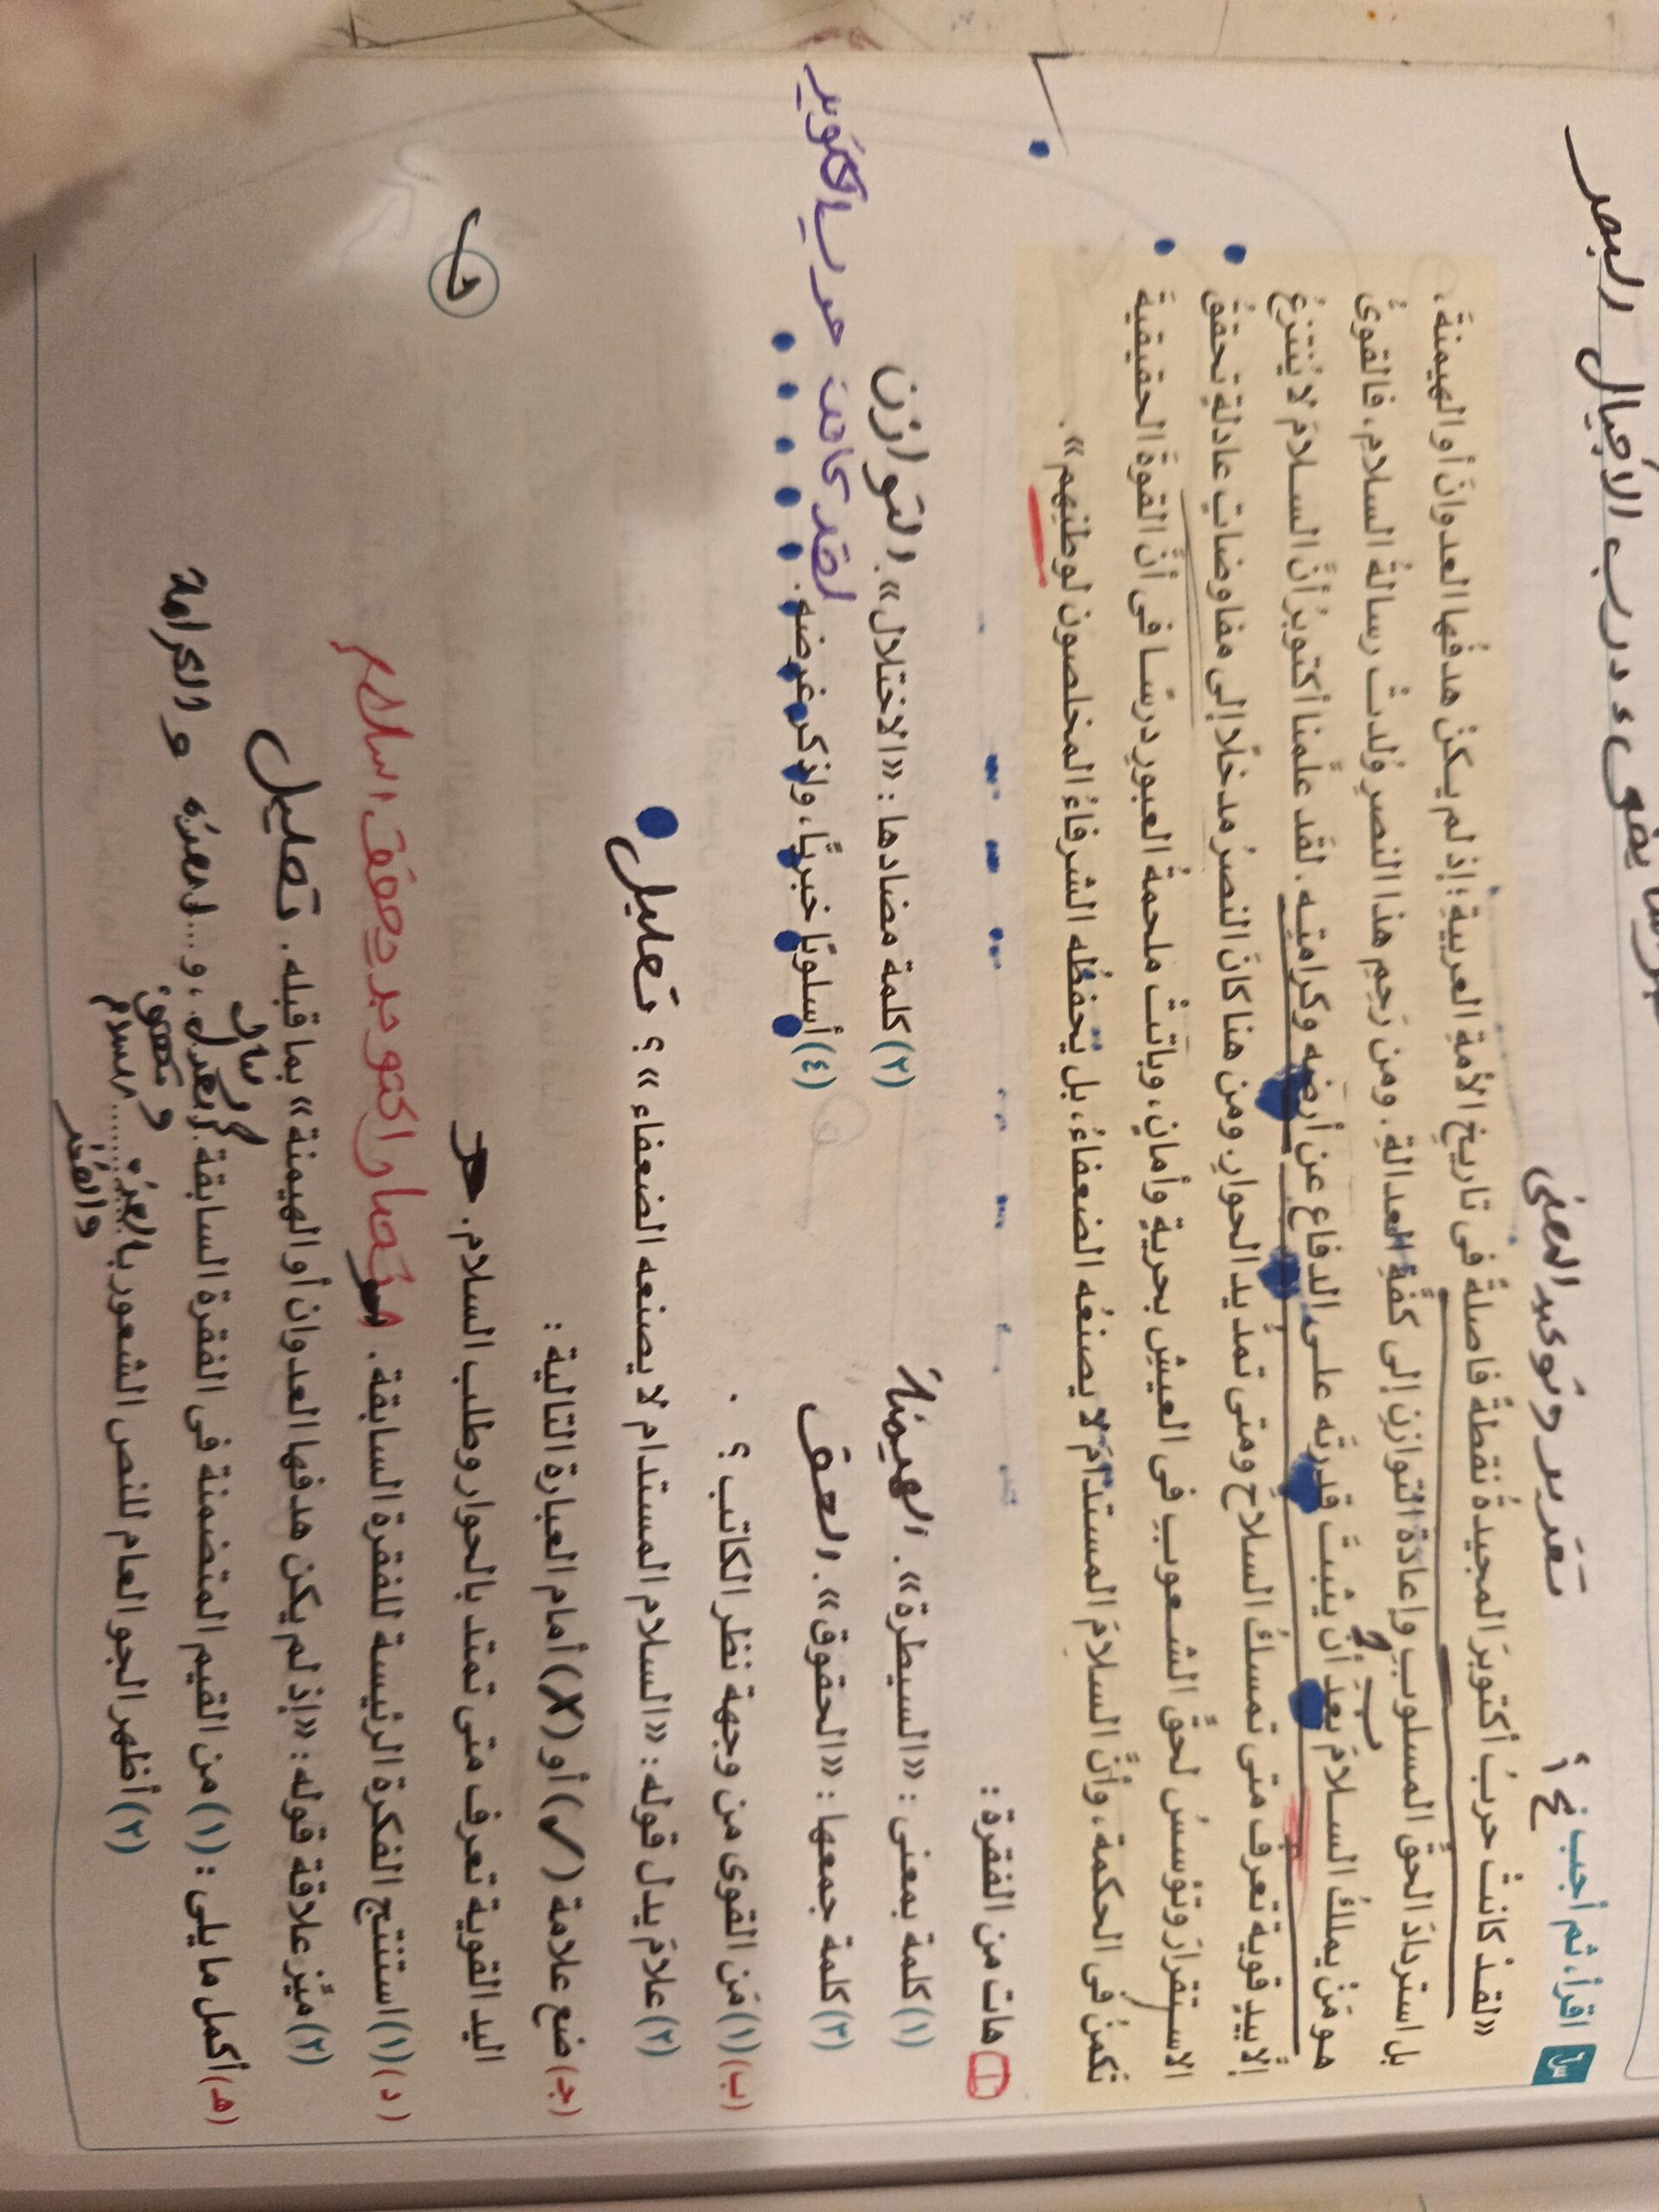 يضىء درب الأجيال
تقرير وتوكيد المعنى
اقرأ، ثم أجب :
«لقد كانتْ حربُ أكتوبرَ المجيدةُ نقطةً فاصلةً فى تاريخِ الأمةِ العربيةِ؛ إذ لم يكنْ هدفُها العدوانَ أو الهيمنةَ،
بل استردادَ الحقِّ المسلوبِ وإعادةَ التوازنِ إلى كفَّةِ العدالةِ. ومن رَحِمِ هذا النصرِ وُلدتْ رسالةُ السلامِ، فالقوىُّ
هو مَنْ يملكُ السلامَ بعد أن يثبتَ قدرتَه على الدفاعِ عن أرضِه وكرامتِه. لقد علَّمنا أكتوبرُ أنَّ السلامَ لا يُنتزعُ
إلَّا بيدٍ قويةٍ تعرف متى تمسكُ السلاحَ ومتى تمدُّ يد الحوارِ. ومن هنا كانَ النصرُ مدخلًا إلى مفاوضاتٍ عادلةٍ تحققُ
الاستقرارَ وتؤسسُ لحقِّ الشعوبِ فى العيشِ بحريةٍ وأمانٍ، وباتتْ ملحمةُ العبورِ درسًا فى أنَّ القوةَ الحقيقيةَ
تكمنُ فى الحكمةِ، وأنَّ السلامَ المستدامَ لا يصنعُه الضعفاءُ، بل يحفظُه الشرفاءُ المخلصون لوطنِهم».
(أ) هات من الفقرة :
(١) كلمة بمعنى : «السيطرة». الهيمنة (٢) كلمة مضادها : «الاختلال». التوازن
(٣) كلمة جمعها : «الحقوق». الحق (٤) أسلوبًا خبريًّا، واذكر غرضه. لقد كانت حرب اكتوبر
(ب) (١) مَن القوى من وجهة نظر الكاتب ؟
(٢) علامَ يدل قوله : «السلام المستدام لا يصنعه الضعفاء» ؟ تعليل
(جـ) ضع علامة (✓) أو (X) أمام العبارة التالية :
اليد القوية تعرف متى تمتد بالحوار وطلب السلام.
(د) (١) استنتج الفكرة الرئيسة للفقرة السابقة. انتصار اكتوبر يحقق السلام
(٢) ميِّز علاقة قوله : «إذ لم يكن هدفها العدوان أو الهيمنة» بما قبله. تعليل
(هـ) أكمل ما يلى : (١) من القيم المتضمنة فى الفقرة السابقة العدل، و... العزة و الكرامة
(٢) أظهر الجو العام للنص الشعور بالعزة
والفخر